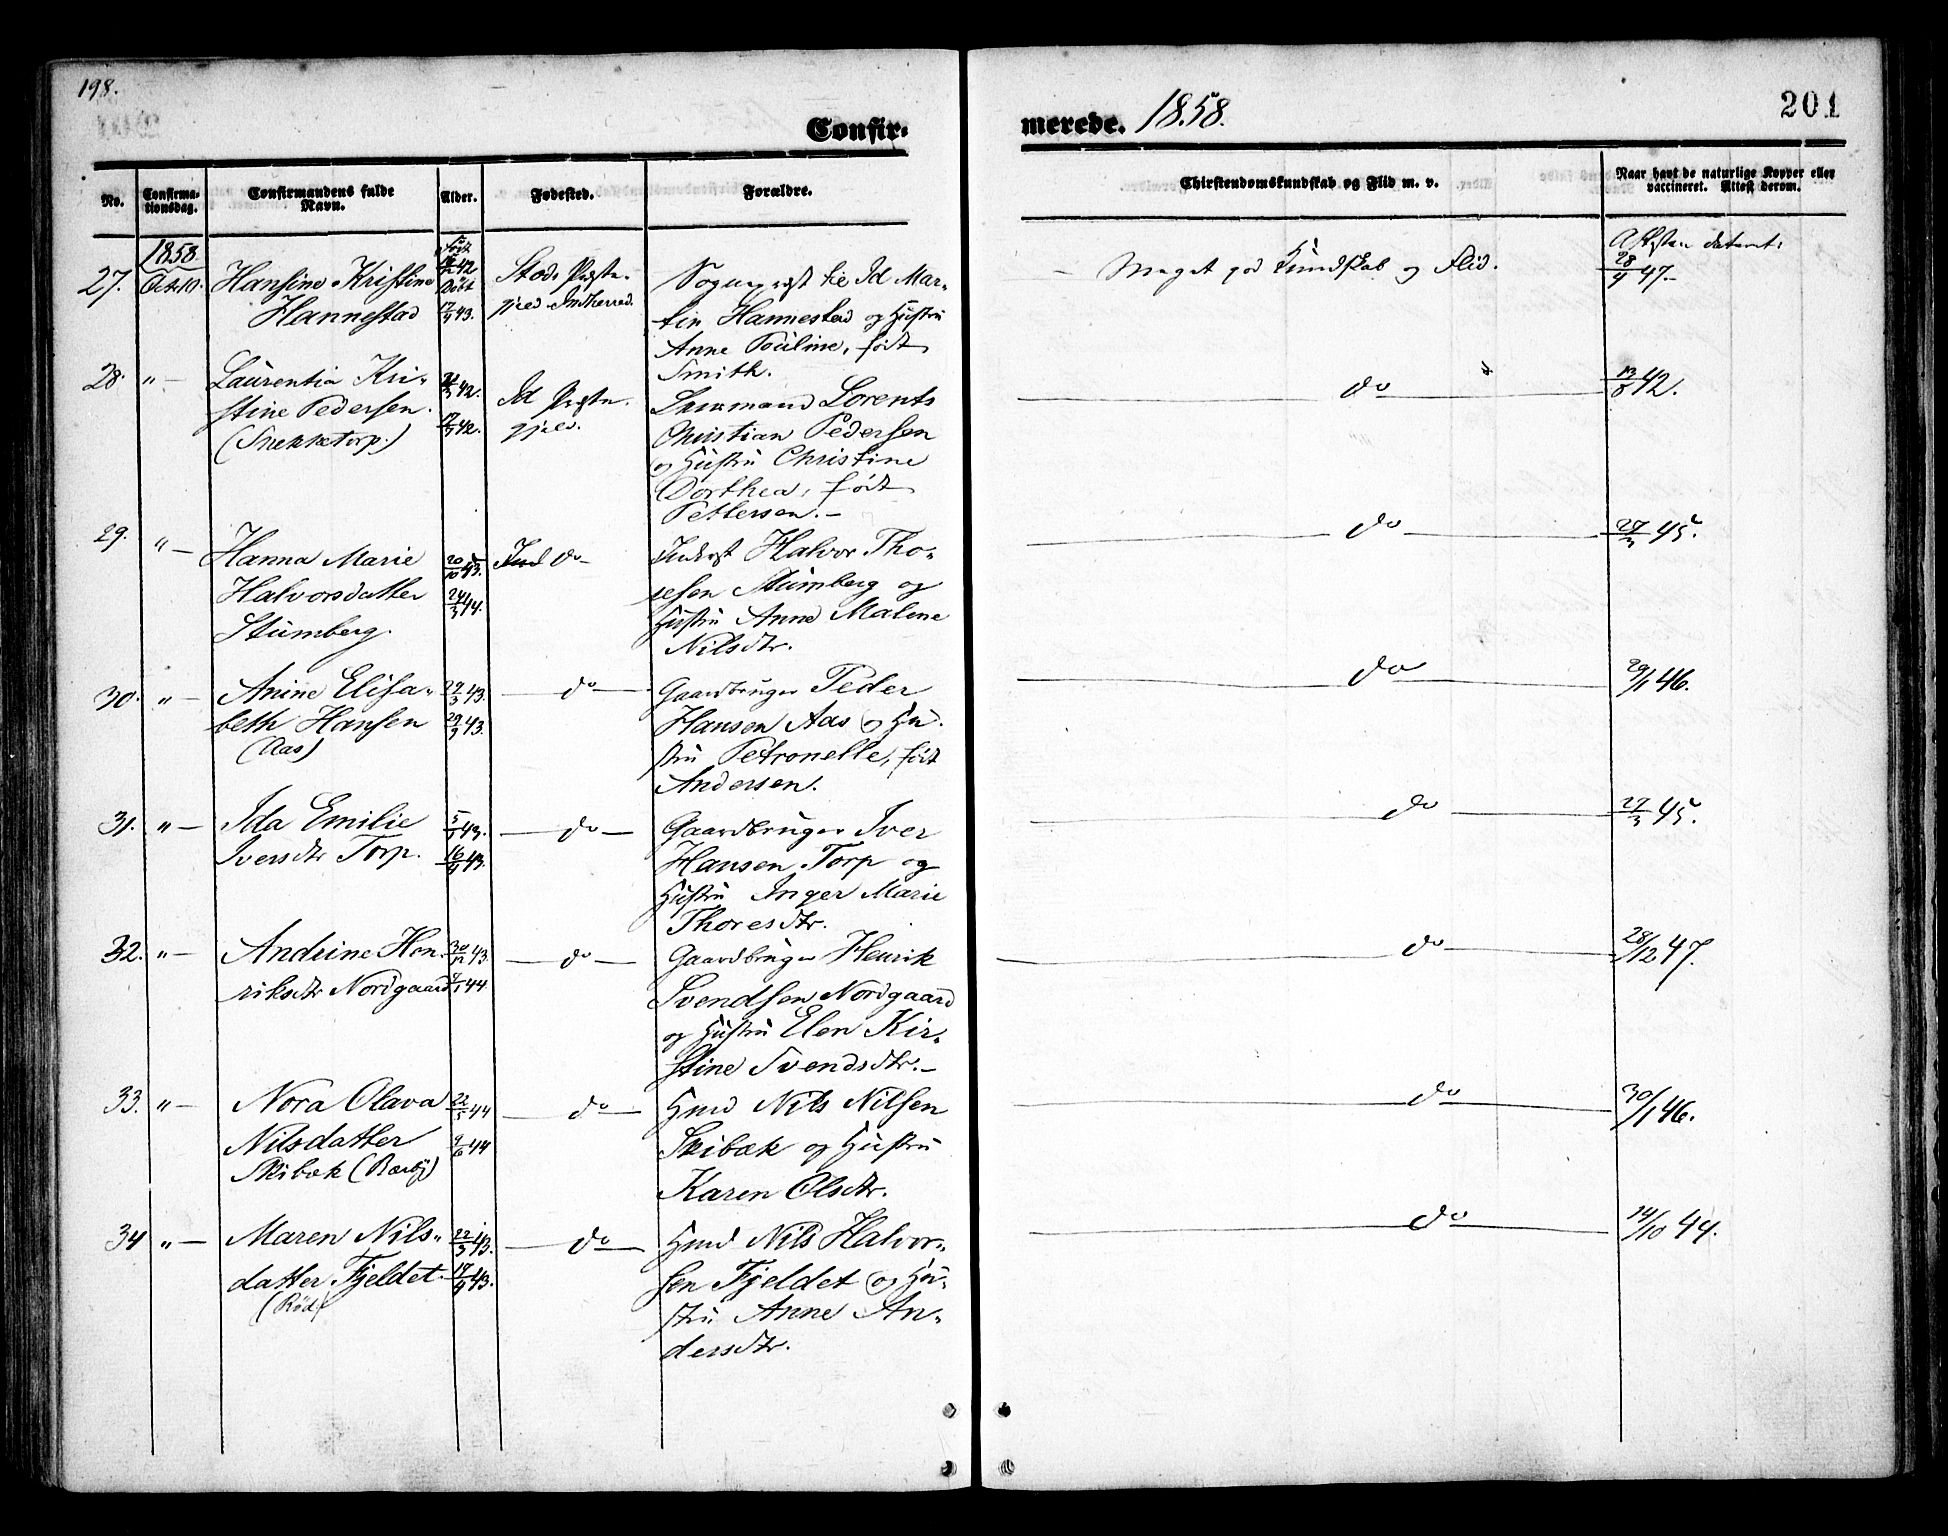 198.
201
Confir-
merede. 1858.
No.
Confirma-
tionsdag.
Confirmandens fulde
Navn.
Alder.
Fødested.
Forældre.
Christendomskundskab og Flid m. v.
Naar havt de naturlige Kopper eller
vaccineret. Attest derom.
1858.
27. Oct. 10. Hansine Kristine
Hannestad
Født
42
Døbt
43.
Stods Præste-
gjeld Indherred.
Sogneprest til Id Mar-
tin Hannestad og Hustru
Anne Pauline, født
Smith.
Meget god Kundskab og Flid.
Attesten dateret:
28/4 47.
28. " — Laurentia Kri-
stine Pedersen.
(Snekketorp.)
42.
42.
Id Præste-
gjeld.
Lorents
Christian Pedersen
og Hustru Christine
Dorthea, født
Pettersen. —
do
13/8 42.
29. " — Hanna Marie
Halvorsdatter
Stumberg.
20/10 43.
24/3 44.
do
Inderst Halvor Tho-
resen Stumberg og
Hustru Anne Malene
Nilsdtr.
do
27/3 45.
30. " — Anine Elisa-
beth Hansen
(Aas)
43.
43.
do
Gaardbruger Peder
Hansen Aas og Hu-
stru Petronelle, født
Andersen.
do
29/1 46.
31. " — Ida Emilie
Iversdtr Torp.
43.
43.
do
Gaardbruger Iver
Hansen Torp og
Hustru Inger Marie
Thoresdtr.
do
27/3 45.
32. " — Andrine Hen-
riksdtr Nordgaard
30/12 43.
44
do
Gaardbruger Henrik
Svendsen Nordgaard
og Hustru Elen Kir-
stine Svendsdtr. —
do
28/12 47.
33. " — Nora Olava
Nilsdatter
Skibæk
22/5 44
9/6 44
do
Hmd Nils Nilsen
Skibæk og Hustru
Karen Olsdtr.
do
30/1 46.
34 " — Maren Nils-
datter Fjeldet.
(Röd)
22/3 43.
43.
do
Hmd Nils Halvor-
sen Fjeldet og Hu-
stru Anne An-
dersdtr.
do
14/10 44.